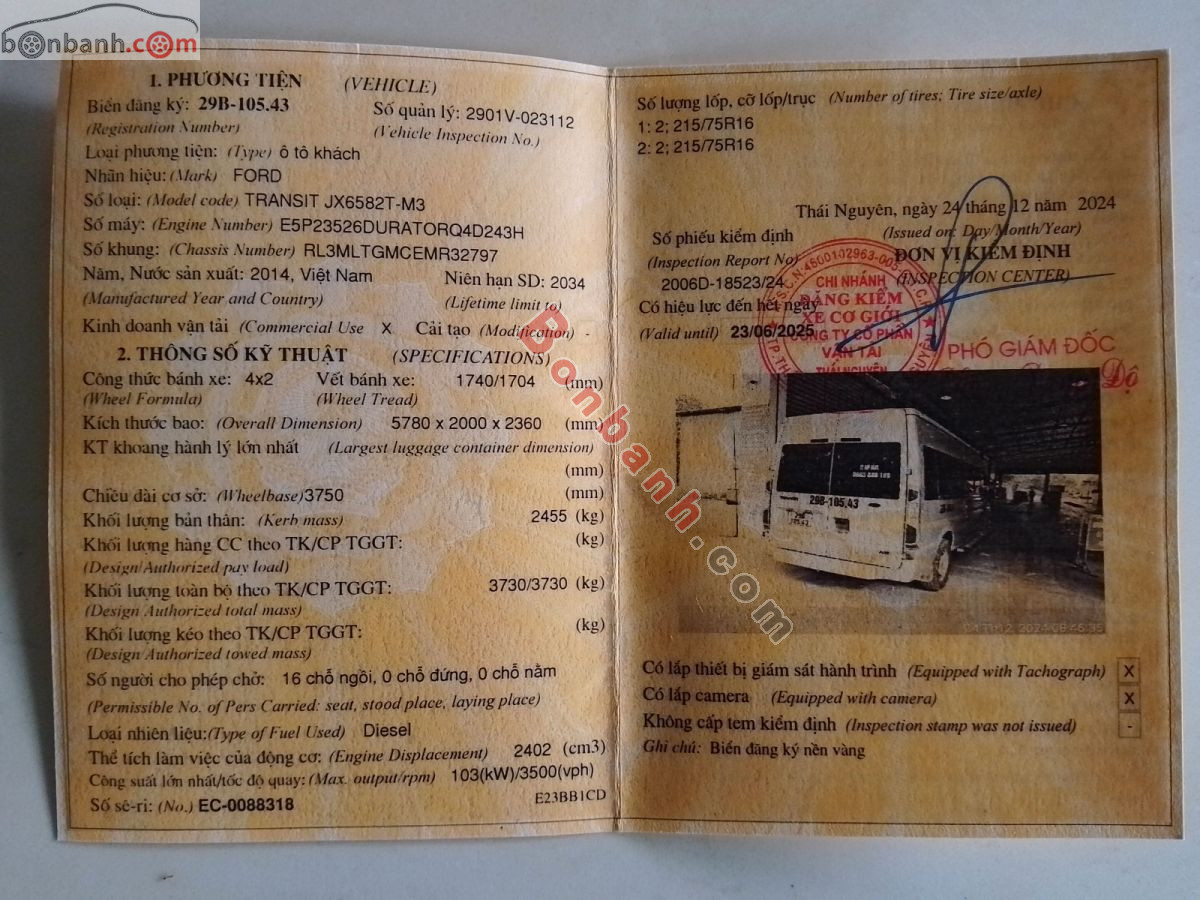 bonbanh.com
1. PHƯƠNG TIỆN (VEHICLE)
Biển đăng ký: 29B-105.43 Số quản lý: 2901V-023112
(Registration Number) (Vehicle Inspection No.)
Loại phương tiện: (Type) ô tô khách
Nhãn hiệu: (Mark) FORD
Số loại: (Model code) TRANSIT JX6582T-M3
Số máy: (Engine Number) E5P23526DURATORQ4D243H
Số khung: (Chassis Number) RL3MLTGMCEMR32797
Năm, Nước sản xuất: 2014, Việt Nam Niên hạn SD: 2034
(Manufactured Year and Country) (Lifetime limit to)
Kinh doanh vận tải (Commercial Use X Cải tạo (Modification) -
2. THÔNG SỐ KỸ THUẬT (SPECIFICATIONS)
Công thức bánh xe: 4x2 Vết bánh xe: 1740/1704 (mm)
(Wheel Formula) (Wheel Tread)
Kích thước bao: (Overall Dimension) 5780 x 2000 x 2360 (mm)
KT khoang hành lý lớn nhất (Largest luggage container dimension)
(mm)
Chiều dài cơ sở: (Wheelbase)3750 (mm)
Khối lượng bản thân: (Kerb mass) 2455 (kg)
Khối lượng hàng CC theo TK/CP TGGT: (kg)
(Design/Authorized pay load)
Khối lượng toàn bộ theo TK/CP TGGT: 3730/3730 (kg)
(Design Authorized total mass)
Khối lượng kéo theo TK/CP TGGT: (kg)
(Design Authorized towed mass)
Số người cho phép chở: 16 chỗ ngồi, 0 chỗ đứng, 0 chỗ nằm
(Permissible No. of Pers Carried: seat, stood place, laying place)
Loại nhiên liệu:(Type of Fuel Used) Diesel
Thể tích làm việc của động cơ: (Engine Displacement) 2402 (cm3)
Công suất lớn nhất/tốc độ quay: (Max. output/rpm) 103(kW)/3500(vph)
Số sê-ri: (No.) EC-0088318 E23BB1CD
Số lượng lốp, cỡ lốp/trục (Number of tires; Tire size/axle)
1: 2; 215/75R16
2: 2; 215/75R16
Thái Nguyên, ngày 24 tháng 12 năm 2024
(Issued on: Day/Month/Year)
Số phiếu kiểm định ĐƠN VỊ KIỂM ĐỊNH
(Inspection Report No) (INSPECTION CENTER)
2006D-18523/24
Có hiệu lực đến hết ngày
(Valid until) 23/06/2025
CHI NHÁNH
ĐĂNG KIỂM
XE CƠ GIỚI
CÔNG TY CỔ PHẦN
VẬN TẢI
THÁI NGUYÊN
PHÓ GIÁM ĐỐC
Độ
29B-105.43
Bonbanh.com
Có lắp thiết bị giám sát hành trình (Equipped with Tachograph) X
Có lắp camera (Equipped with camera) X
Không cấp tem kiểm định (Inspection stamp was not issued) -
Ghi chú: Biển đăng ký nền vàng